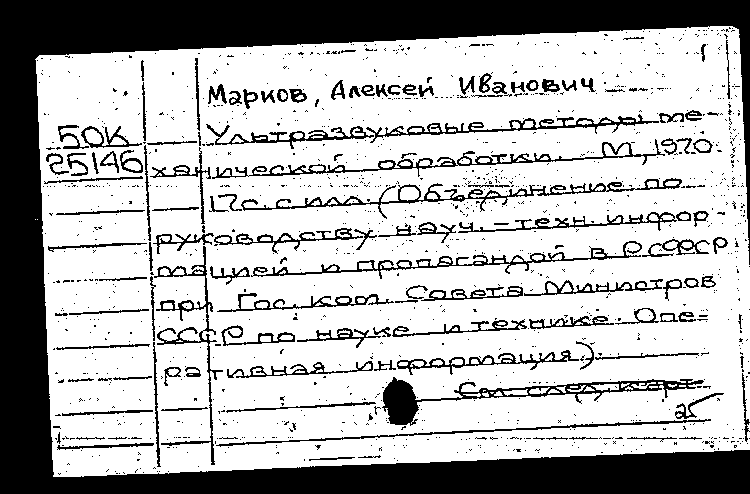 1
Марков, Алексей Иванович
50К Ультразвуковые методы ме-
25146 ханической обработки. М, 1970.
17с. с илл. (Объединение по
руководству науч.-техн. инфор-
мацией и пропагандой в РСФСР
при Гос. ком. Совета Министров
СССР по науке и технике. Опе-
ративная информация).
См. след. карт
25